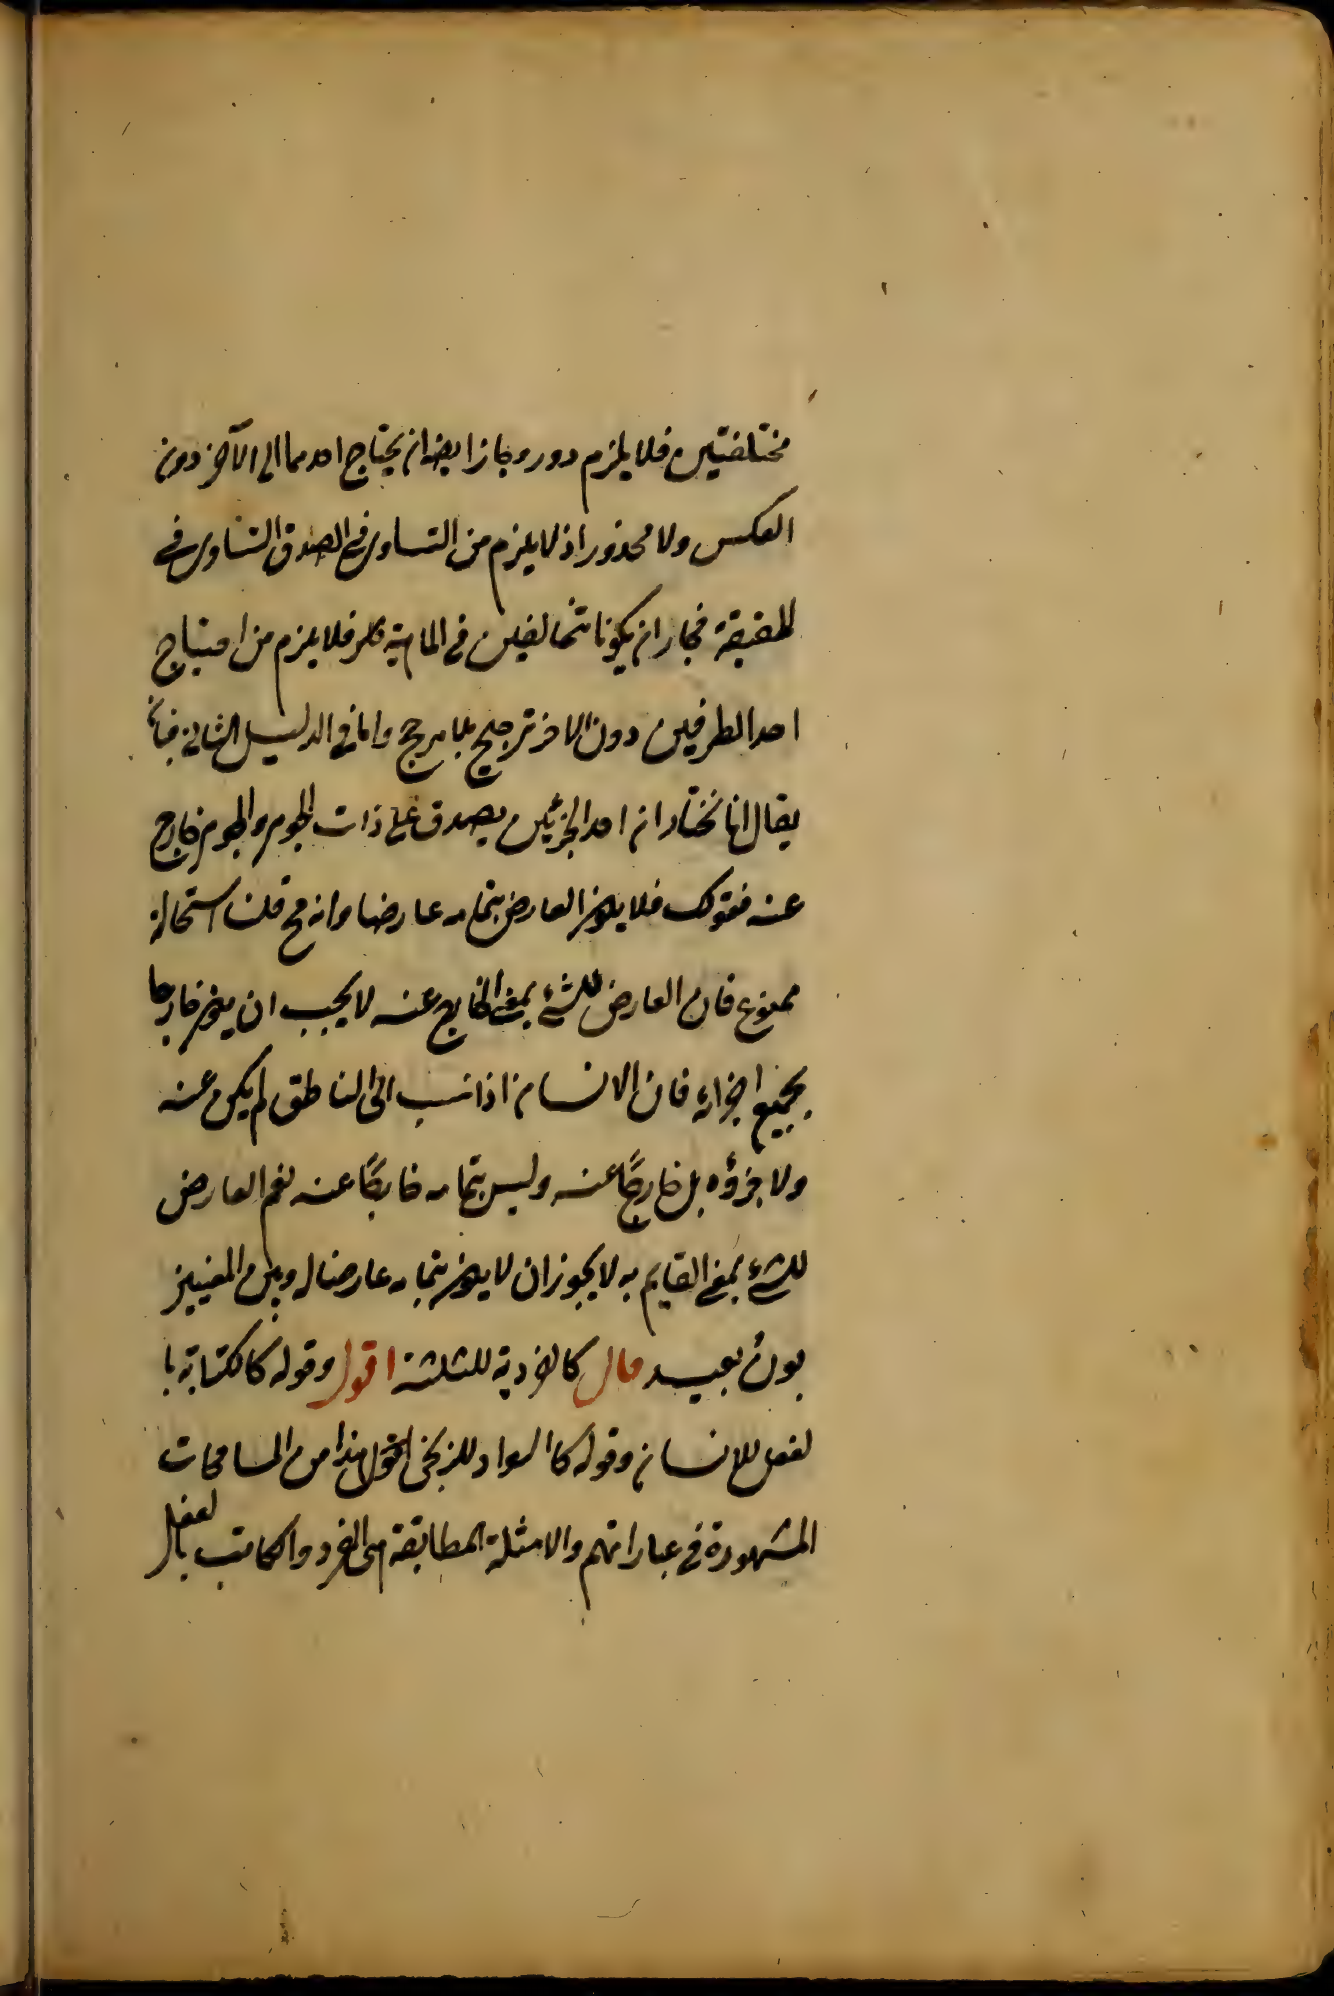 مختلفتين فلا يلزم دور وجاز ايضا ان يحتاج احدهما الى الآخر دون
العكس ولا محذور اذ لا يلزم من التساوى فى الصدق التساوى فى
الحقيقة فجاز ان يكونا متخالفين فى الماهية فلا يلزم من احتياج
احد الطرفين دون الاخر ترجيح بلا مرجح واما فى الدليل الثانى فبان
يقال انا نختار ان احد الجزئين يصدق على ذات الجوهر والجوهر خارج
عنه فقولك فلا يكون العارض بتمامه عارضا وانه مح قلنا استحالته
ممنوع فان العارض للشئ بمعنى الخارج عنه لا يجب ان يكون خارجا
بجميع اجزائه فان الانسان اذا نسب الى الناطق لم يكن عينه
ولا جزؤه بل خارجًا عنه وليس بتمامه خارجًا عنه نعم العارض
للشئ بمعنى القايم به لا يجوز ان لا يكون بتمامه عارضا له وبين المعنيين
بونٌ بعيد قال كالفردية للثلثة اقول وقوله كالكتابة با
لفعل للانسان وقوله كالسواد للزنجى اقول هذا من المسامحات
المشهورة فى عباراتهم والامثلة المطابقة هى الفرد والكاتب بالفعل